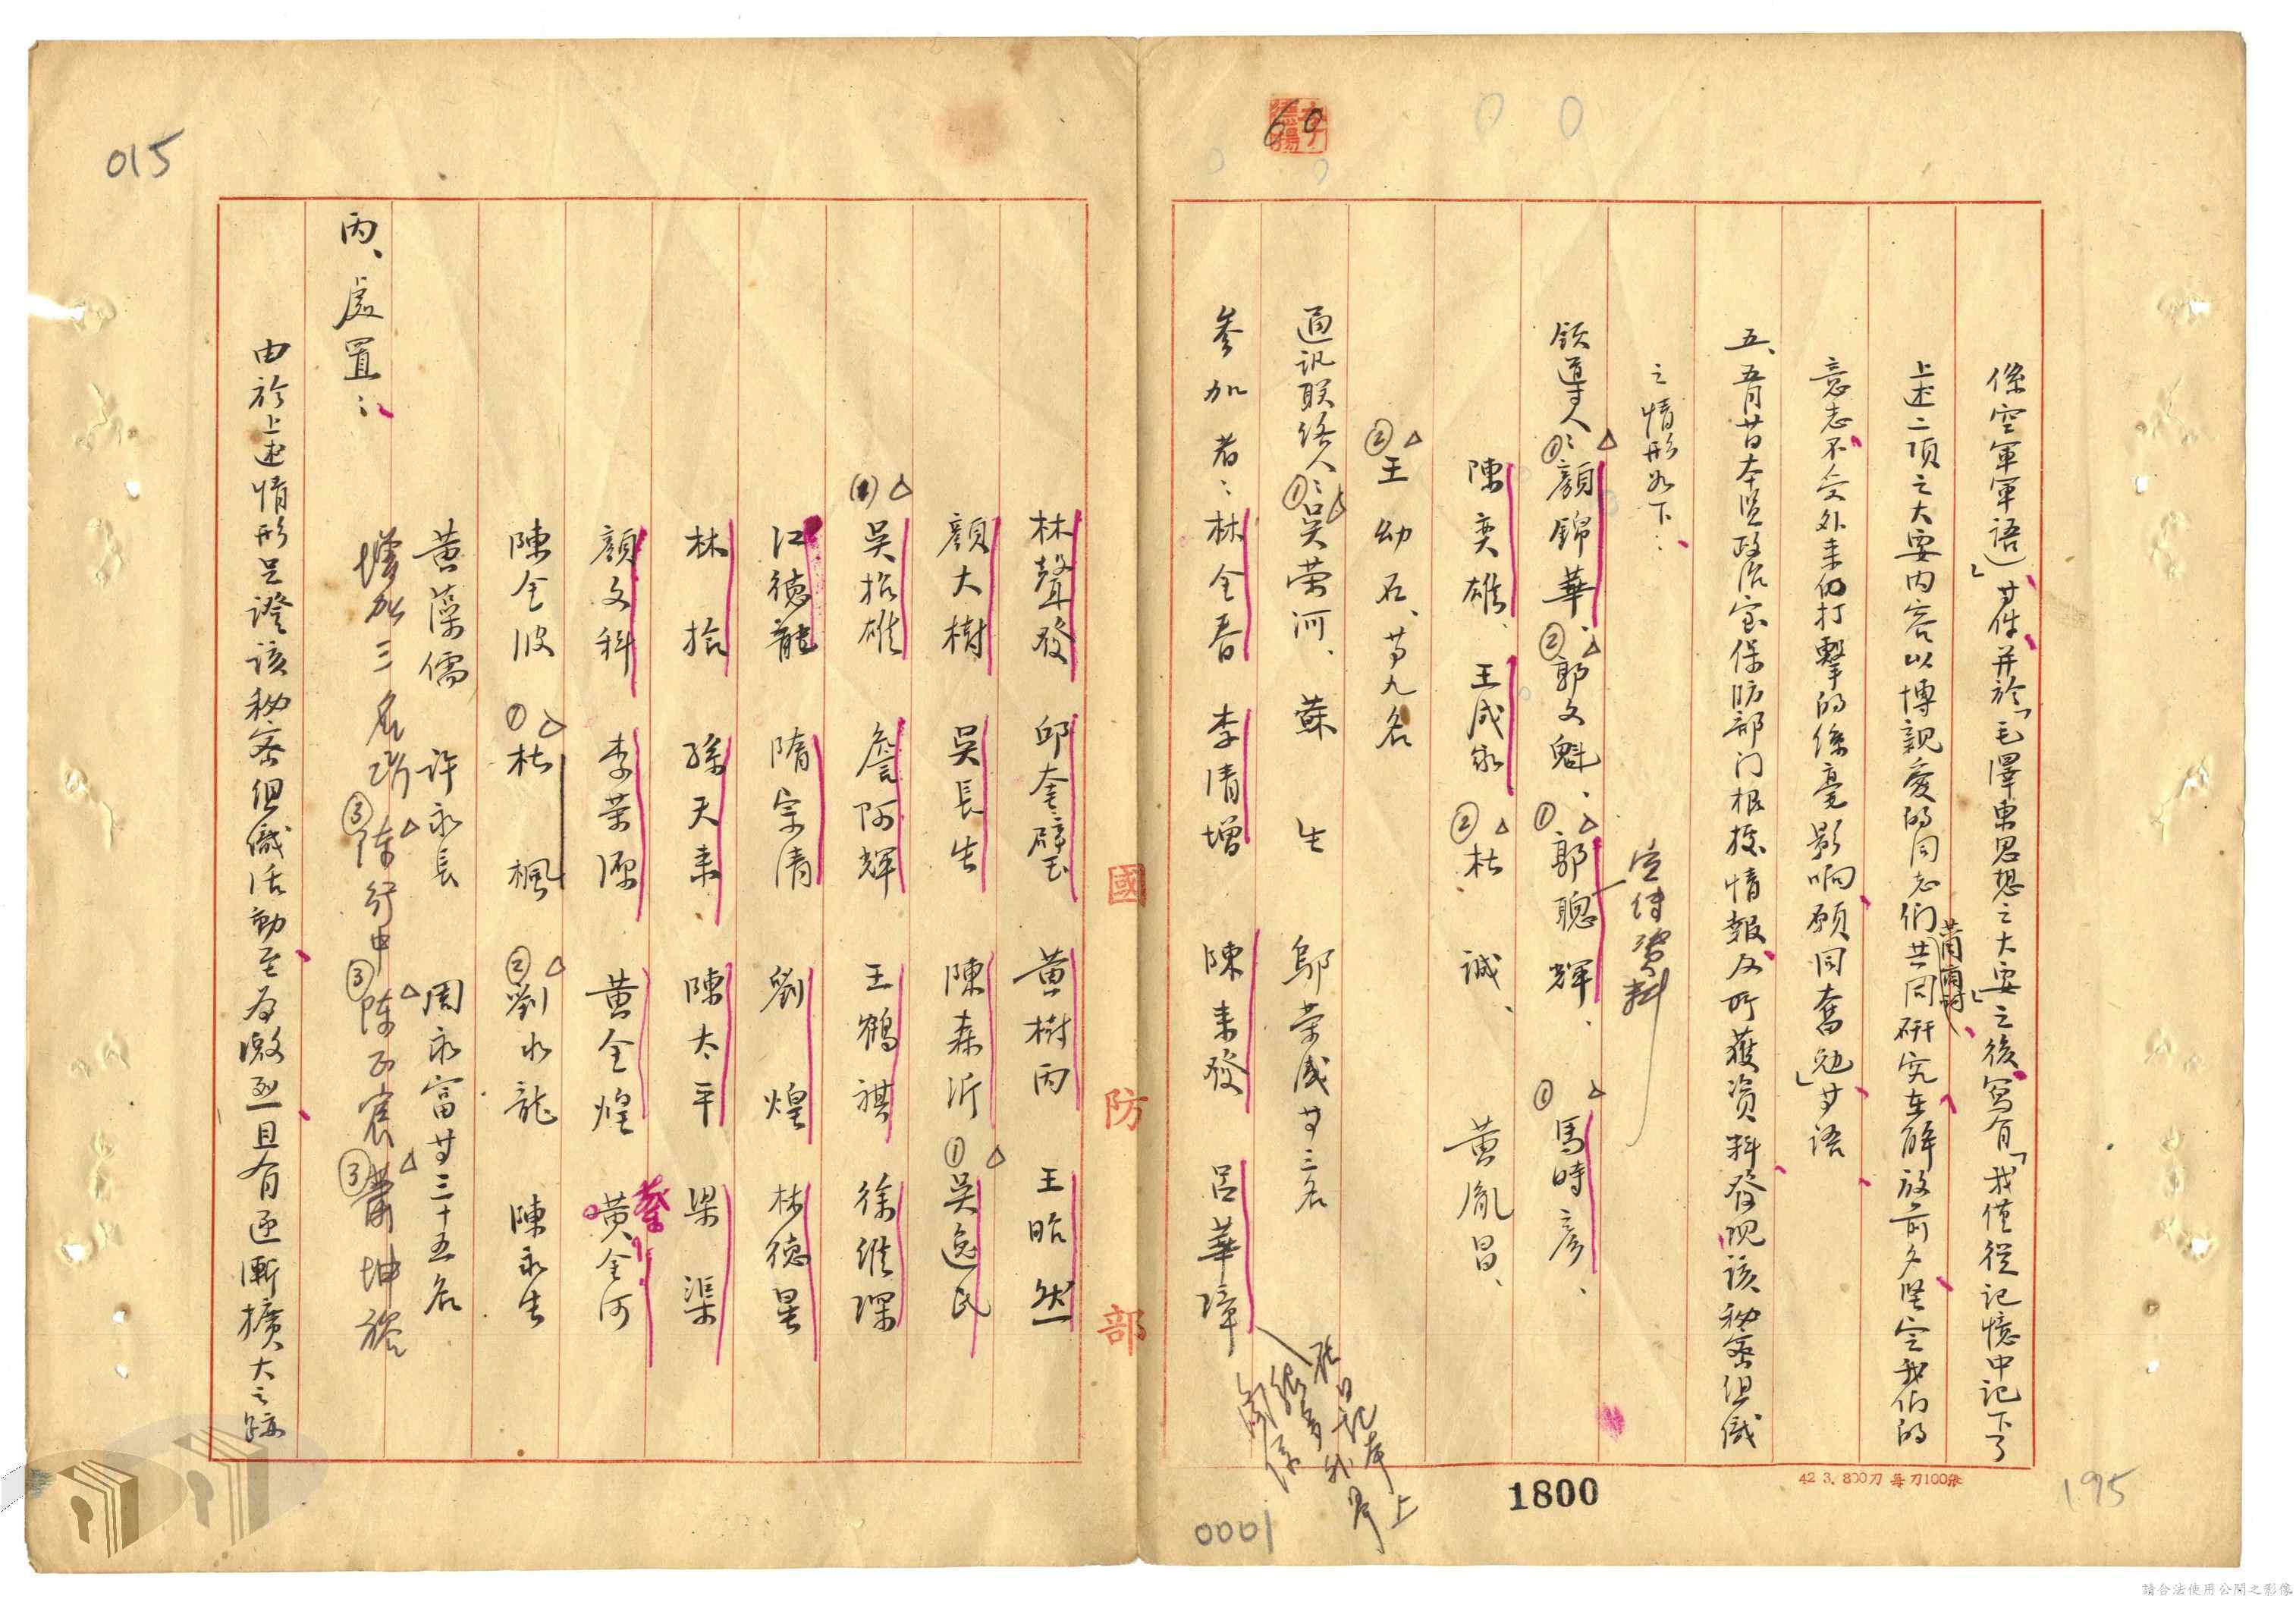 係空軍軍語」廿件并於「毛澤東思想之大要」之後寫有「我僅從記憶中記下了
上述二項之大要内容以博親愛的同志們共同研究在解放前夕堅定我們的
意志不受外来的打擊的係毫影响願同奮勉」廿语
五、五月廿日本監政治室保防部门根據情報及所獲资料發现該秘密组織
之情形如下:
宣传资料
领導人:①△顏錦華、②△郭文魁、①△郭聰輝、①△馬時彦、
陳奕雄、王成家、②△杜誠、黄胤昌、
②△王幼石、等九名
通訊联络人:①△吴荣河、蘇生 鄔荣盛等三名
参加者:林全春 李清增 陳来發 呂華璋
在日记本上
關係
林聲發 邱奎璧 黄樹丙 王昭然
顏大樹 吴長生 陳森沂 ①△吴逸民
△吴振雄 詹阿輝 王鶴祺 徐維琛
江德龍 隋宗清 劉煌 林德星
林拾 孫天来 陳太平 梁渠
顏文科 李荣源 黄全煌 黄全河
蔡
陳全波 ①△杜楓 ②△劉水龍 陳永生
黄藻儒 许永長 周永富等三十五名
增加三名 ③△陈行中 ③△陈正宸 ③△蕭坤裕
丙、處置:
由於上述情形足證該秘密组織活動至為激烈且有逐漸擴大之跡
國防部
015
69
1800
42 3. 800刀 每刀100张
195
0001
請合法使用公開之影像